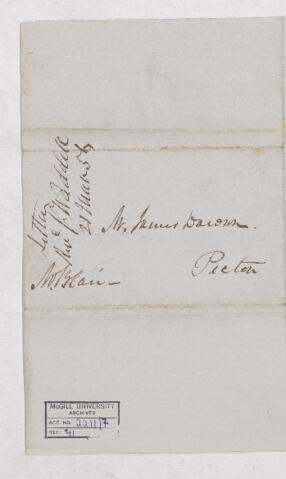 Letter
Waddell
21 Mar 56
Mr James Dawson.
Pictou
Mr Blair
McGILL UNIVERSITY
ARCHIVES
ACC. NO. 2211/7
REF. 41